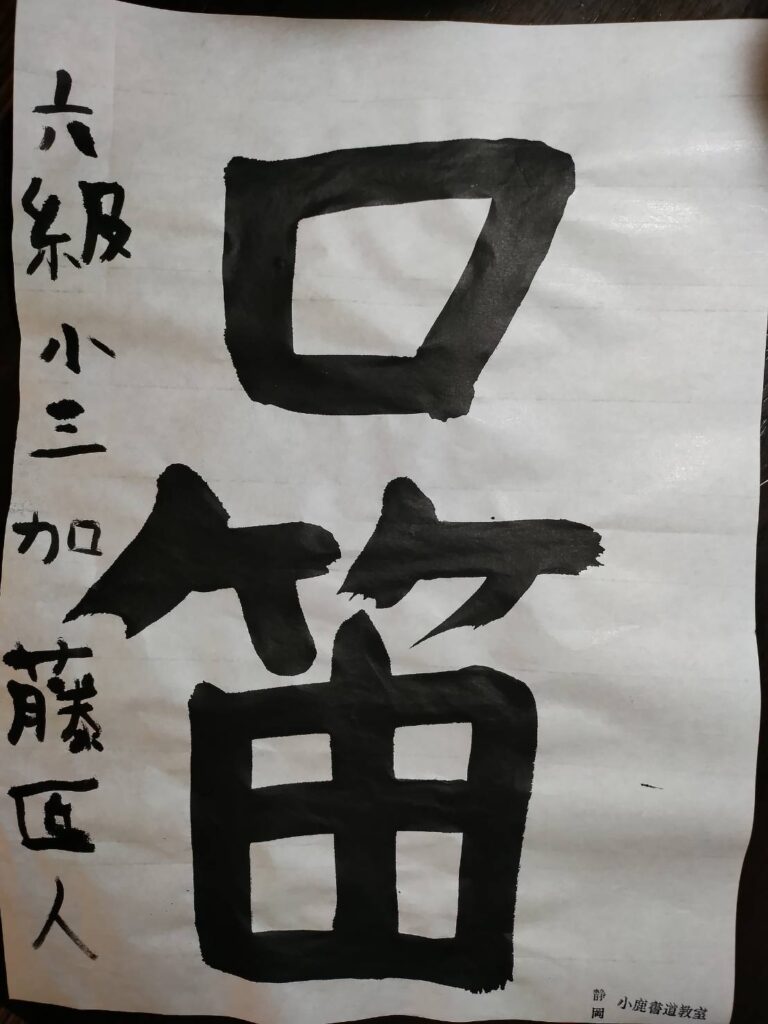 口笛
六級 小三 加藤匠人
静岡 小鹿書道教室